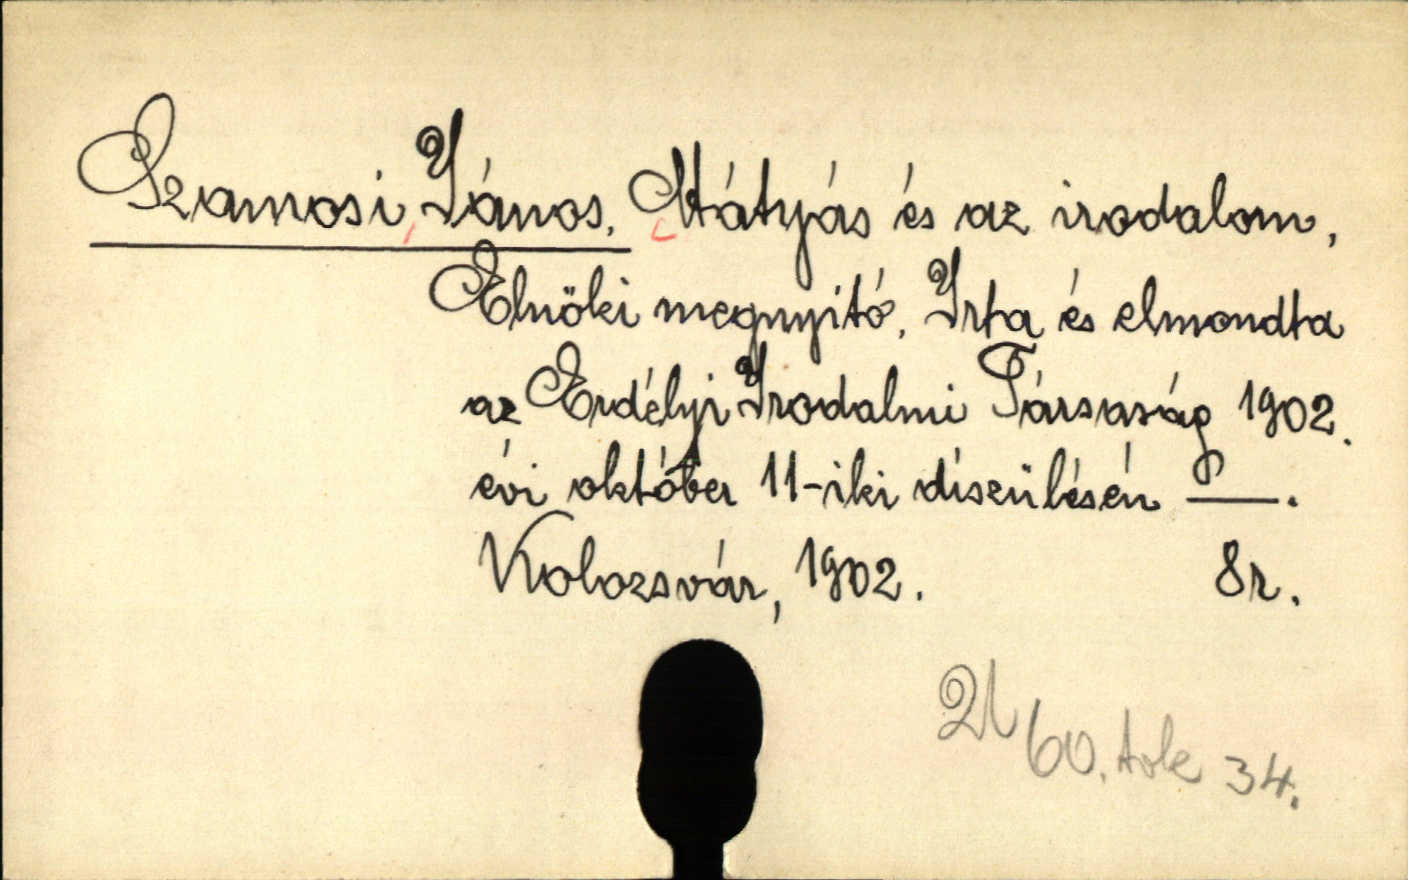 Szamosi, János. Mátyás és az irodalom,
Elnöki megnyitó. Irta és elmondta
az Erdélyi Irodalmi Társaság 1902.
évi október 11-iki díszülésén —.
Kolozsvár, 1902. 8r.
60. tok 34.